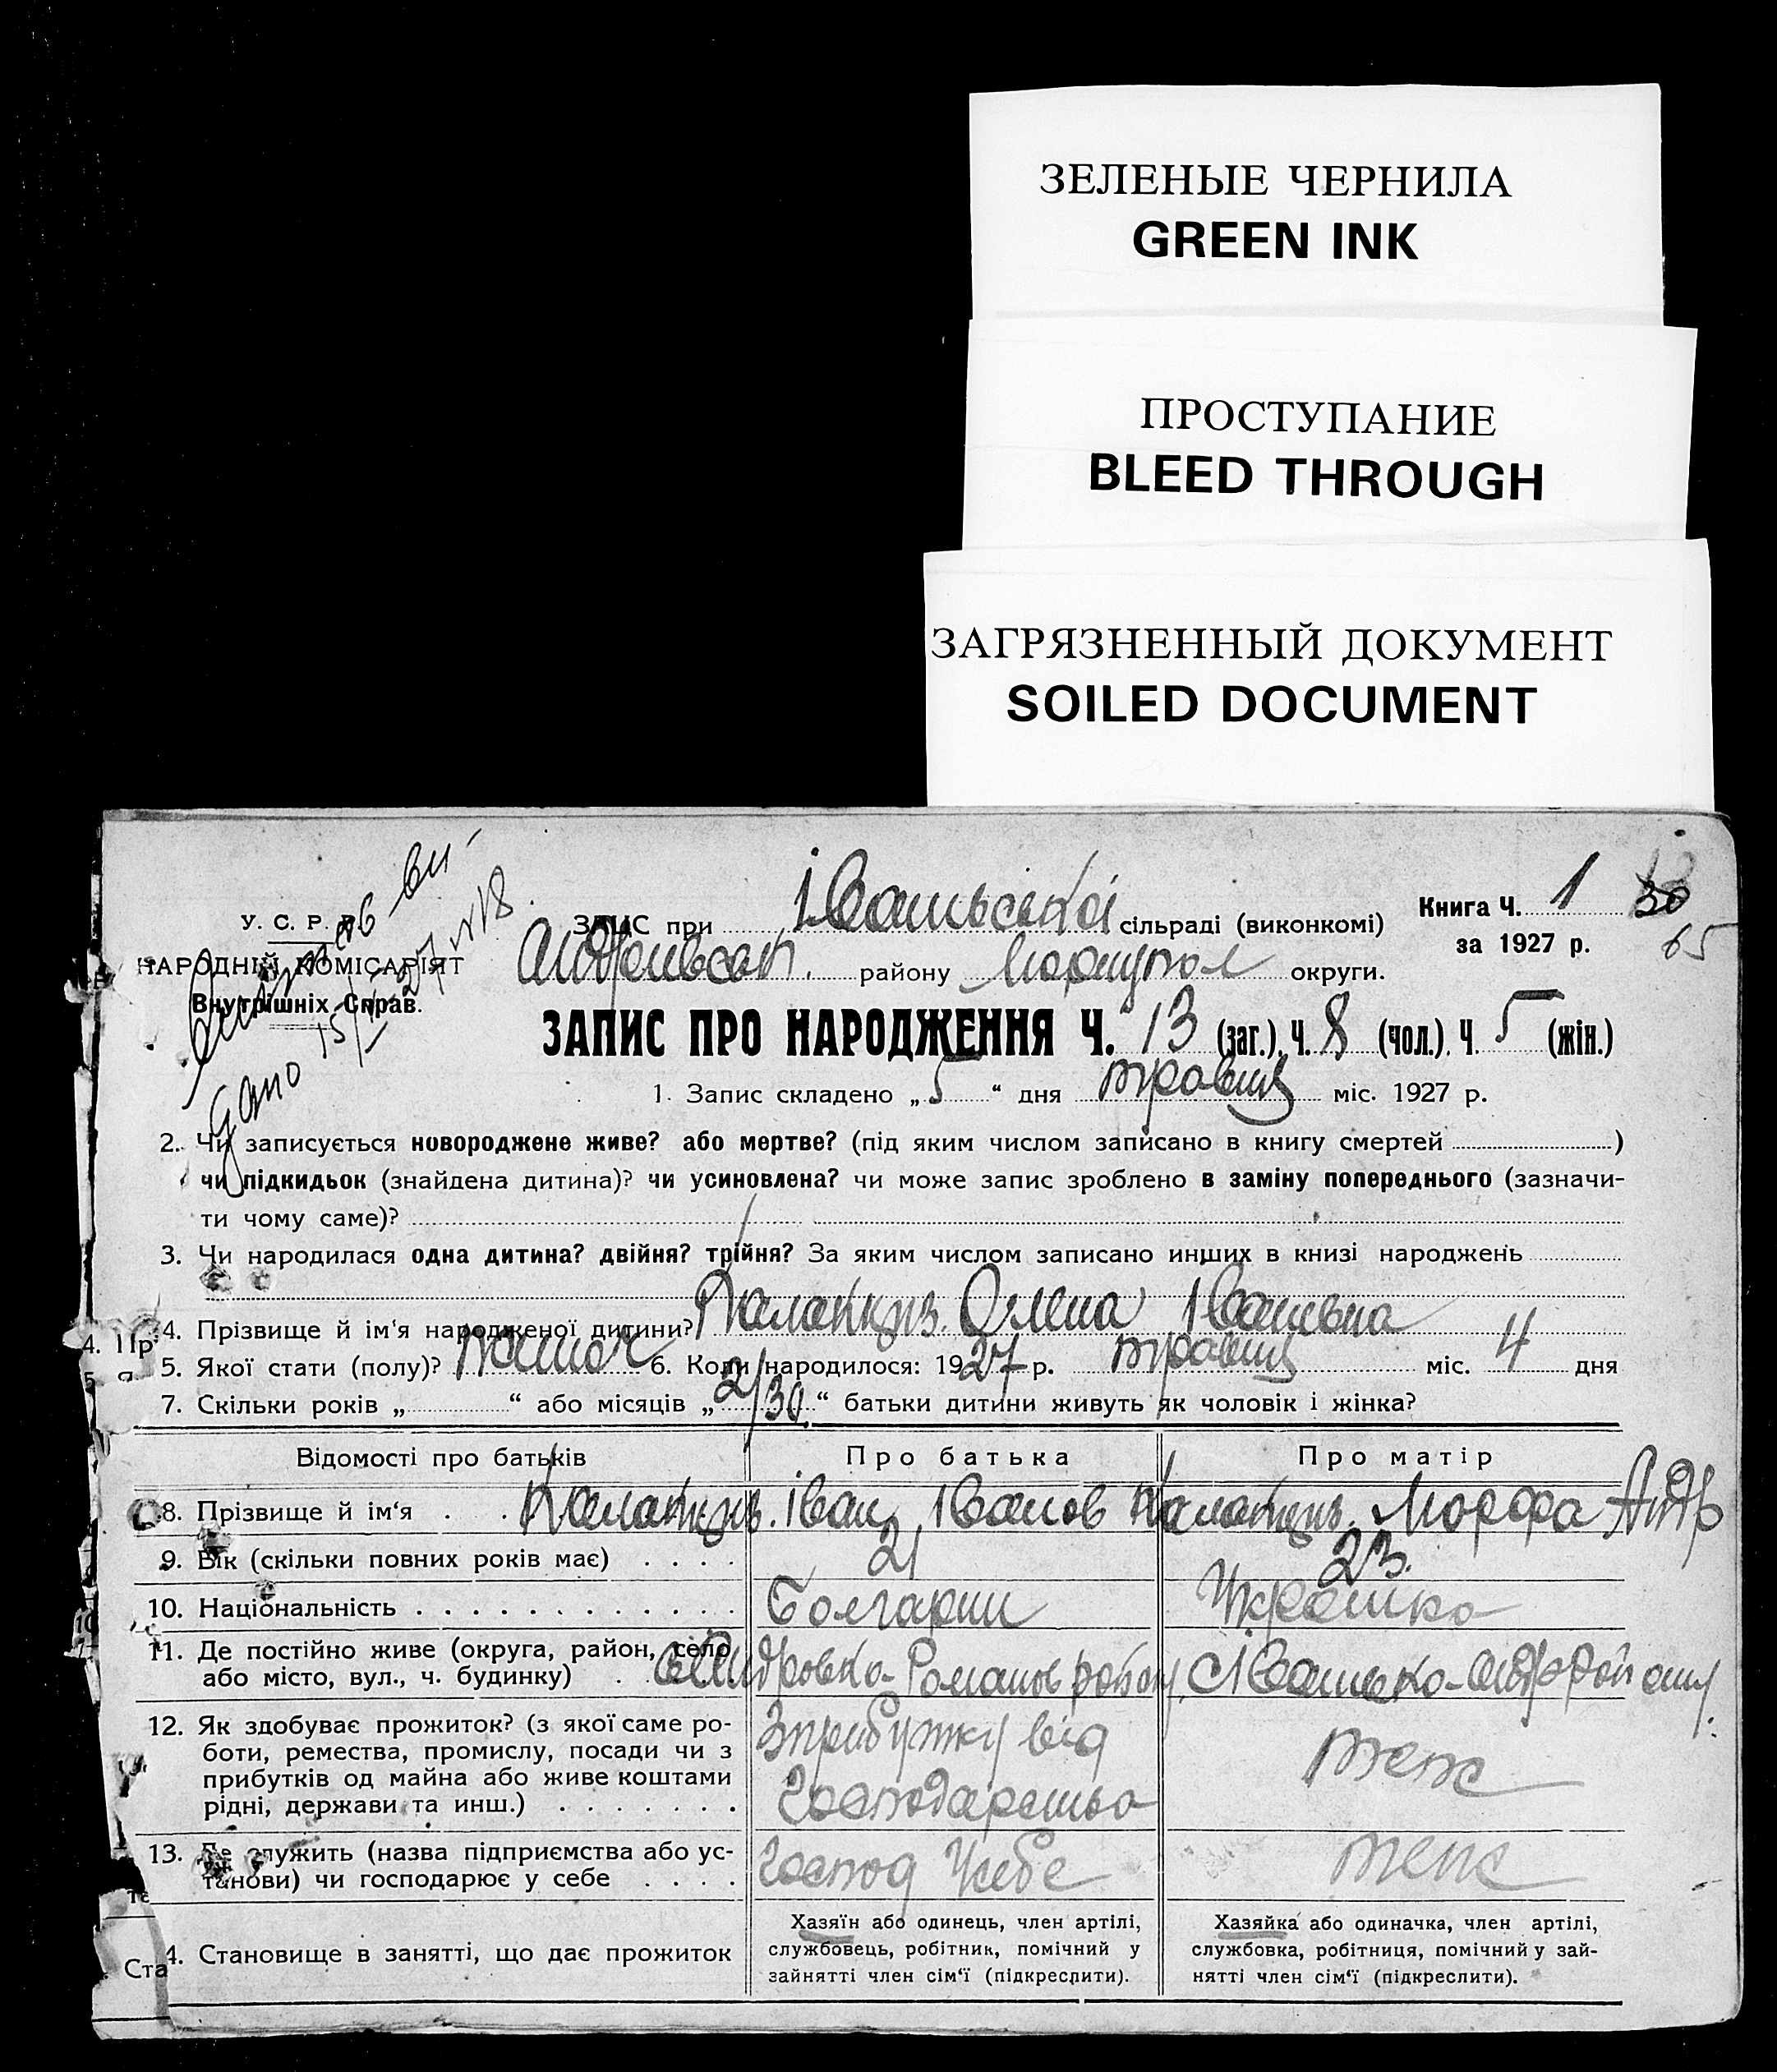 ЗЕЛЕНЫЕ ЧЕРНИЛА
GREEN INK
ПРОСТУПАНИЕ
BLEED THROUGH
ЗАГРЯЗНЕННЫЙ ДОКУМЕНТ
SOILED DOCUMENT
У. С. Р. Р.
НАРОДНІЙ КОМІСАРІЯТ
Внутрішніх Справ.
ЗАПИС при Іванській сільраді (виконкомі)
району Маріупол округи.
Книга Ч. 1 30
за 1927 р. 65
ЗАПИС ПРО НАРОДЖЕННЯ Ч. 13 (заг.), Ч. 8 (чол.), Ч. 5 (жін.)
1. Запис складено „ 5 “ дня травня міс. 1927 р.
2. Чи записується новороджене живе? або мертве? (під яким числом записано в книгу смертей )
чи підкидьок (знайдена дитина)? чи усиновлена? чи може запис зроблено в заміну попереднього (зазначи-
ти чому саме)?
3. Чи народилася одна дитина? двійня? трійня? За яким числом записано инших в книзі народжень
4. Прізвище й ім'я народженої дитини? Олена Івановна
5. Якої стати (полу)? 6. Коли народилося: 1927 р. травня міс. 4 дня
7. Скільки років „ “ або місяців „ “ батьки дитини живуть як чоловік і жінка?
Відомості про батьків Про батька Про матір
8. Прізвище й ім'я . . Іван Іванов
9. Вік (скільки повних років має) . . . . 21 23.
10. Національність . . . . . . . . . . . . . Болгарин Українка
11. Де постійно живе (округа, район, село
або місто, вул., ч. будинку) .
12. Як здобуває прожиток? (з якої саме ро-
боти, ремества, промислу, посади чи з
прибутків од майна або живе коштами
рідні, держави та инш.) . . . . . . .
З прибутку від
теж
13. Де служить (назва підприємства або ус-
танови) чи господарює у себе . . . .
Господ У себе
теж
14. Становище в занятті, що дає прожиток
Хазяїн або одинець, член артілі,
службовець, робітник, помічний у
зайнятті член сім'ї (підкреслити).
Хазяйка або одиначка, член артілі,
службовка, робітниця, помічний у зай-
нятті член сім'ї (підкреслити).